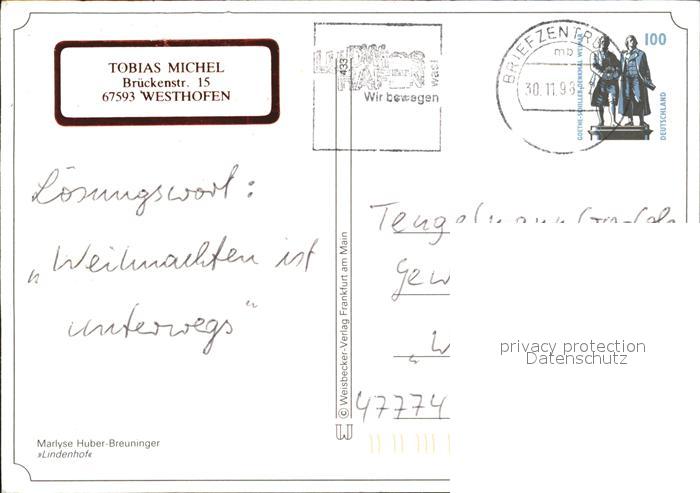 TOBIAS MICHEL
Brückenstr. 15
67593 WESTHOFEN
433
was!
Wir bewegen
BRIEFZENTRU
mb
30.11.98
100
GOETHE-SCHILLER-DENKMAL WEIMAR
DEUTSCHLAND
Lösungswort:
„Weihnachten ist
unterwegs"
Tengelmann
Gew
„W
47774
© Weisbecker-Verlag Frankfurt am Main
privacy protection
Datenschutz
Marlyse Huber-Breuninger
»Lindenhof«